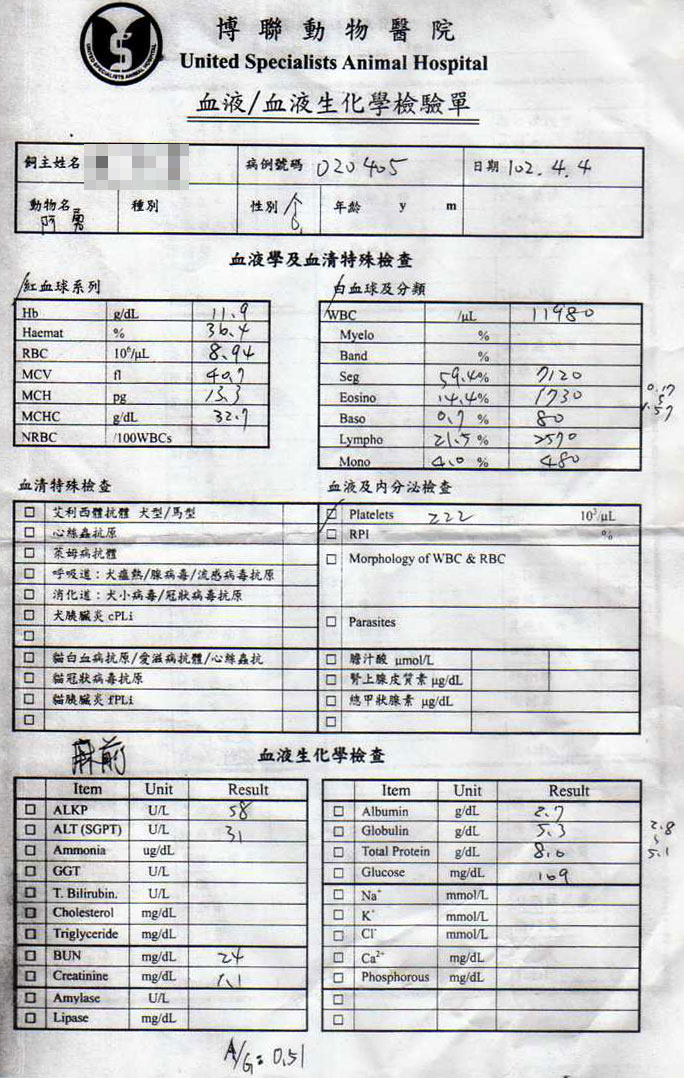 UNITED SPECIALISTS ANIMAL HOSPITAL
博聯動物醫院
United Specialists Animal Hospital
血液/血液生化學檢驗單
飼主姓名 病例號碼 020405 日期 102.4.4
動物名 阿勇 種別 性別 年齡 y m
血液學及血清特殊檢查
紅血球系列
Hb g/dL 11.9
Haemat % 36.4
RBC 10⁶/μL 8.94
MCV fl 40.7
MCH pg 13.3
MCHC g/dL 32.7
NRBC /100WBCs
白血球及分類
WBC /μL 11980
Myelo %
Band %
Seg 59.4% 7120
Eosino 14.4% 1730 0.17
Baso 0.7% 80 1.57
Lympho 21.5% 2570
Mono 4.0% 480
血清特殊檢查
□ 艾利西體抗體 犬型/馬型
□ 心絲蟲抗原
□ 萊姆病抗體
□ 呼吸道：犬瘟熱/腺病毒/流感病毒抗原
□ 消化道：犬小病毒/冠狀病毒抗原
□ 犬胰臟炎 cPLi
□
□ 貓白血病抗原/愛滋病抗體/心絲蟲抗
□ 貓冠狀病毒抗原
□ 貓胰臟炎 fPLi
□
血液及內分泌檢查
□ Platelets 222 10³/μL
□ RPI %
□ Morphology of WBC & RBC
□ Parasites
□ 膽汁酸 μmol/L
□ 腎上腺皮質素 μg/dL
□ 總甲狀腺素 μg/dL
□
麻前
血液生化學檢查
Item Unit Result
□ ALKP U/L 58
□ ALT (SGPT) U/L 31
□ Ammonia ug/dL
□ GGT U/L
□ T. Bilirubin. U/L
□ Cholesterol mg/dL
□ Triglyceride mg/dL
□ BUN mg/dL 24
□ Creatinine mg/dL 1.1
□ Amylase U/L
□ Lipase mg/dL
Item Unit Result
□ Albumin g/dL 2.7
□ Globulin g/dL 5.3 2.8
□ Total Protein g/dL 8.0 5.1
□ Glucose mg/dL 109
□ Na⁺ mmol/L
□ K⁺ mmol/L
□ Cl⁻ mmol/L
□ Ca²⁺ mg/dL
□ Phosphorous mg/dL
□
□
A/G = 0.51